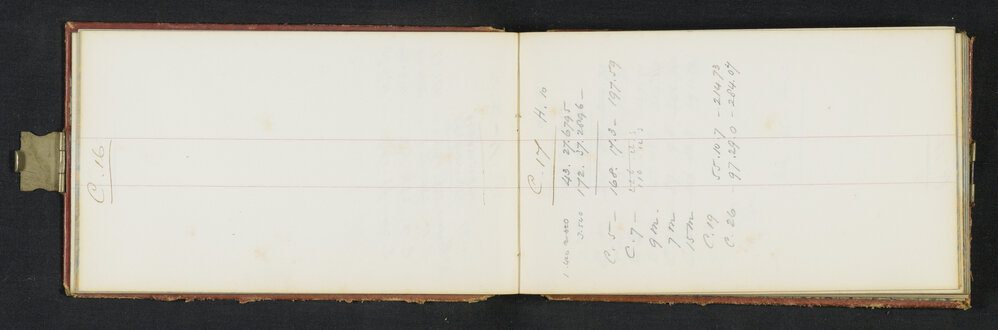 C. 16
C. 17 H. 10
43. 27.6795
3.500 172. 37.2896 -
C. 5 - 168. 17.3 - 197.59
C. 7 -
9 m.
7 m
15 m
C. 19 55.10.7 - 214.73
C. 26 97.29.0 - 284.07